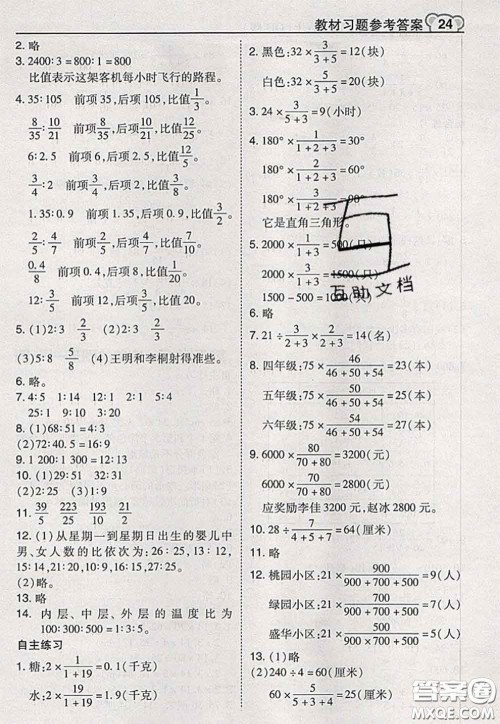 教材习题参考答案 24
2. 略
3. 2400:3=800:1=800
比值表示这架客机每小时飞行的路程。
4. 35:105 前项35,后项105,比值1/3。
8/35:10/21 前项8/35,后项10/21,比值12/25。
6:2.5 前项6,后项2.5,比值12/5。
3/4:2 前项3/4,后项2,比值3/8。
1.35:0.9 前项1.35,后项0.9,比值3/2。
30:25 前项30,后项25,比值6/5。
0.4/8 前项0.4,后项8,比值1/20。
12:3/5 前项12,后项3/5,比值20。
5. (1)2:3 2/3 (2)略。
(3)5:8 5/8 (4)王明和李桐射得准些。
6. 略。
7. 4:5 1:14 32:1 2:1
25:27 1:9 3:10 3:20
8. (1)68:51=4:3
(2)72:40.5=16:9
9. 1 200:1 300=12:13
10. (1)29:51 (2)2:29 (3)29:31
11. 39/5 223/25 213/50 191/50
12. (1)从星期一到星期日出生的婴儿中
男、女人数的比依次为26:25,13:12,
15:14,27:28,1:1,9:10,16:15。
(2)略。
13. 略
14. 内层、中层、外层的温度比为
100:300:500=1:3:5。
自主练习
1. 糖:2×1/(1+19)=0.1(千克)
水:2×19/(1+19)=1.9(千克)
2. 黑色:32×3/(3+5)=12(块)
白色:32×5/(3+5)=20(块)
3. 24×3/(5+3)=9(小时)
4. 180°×1/(1+2+3)=30°
180°×2/(1+2+3)=60°
180°×3/(1+2+3)=90°
它是直角三角形。
5. 2000×1/(1+3)=500(只)
2000×3/(1+3)=1500(只)
1500-500=1000(只)
互助文档
6. 略
7. 21÷3/(3+2)×2/(3+2)=14(名)
8. 四年级:75×46/(46+50+54)=23(本)
五年级:75×50/(46+50+54)=25(本)
六年级:75×54/(46+50+54)=27(本)
9. 6000×80/(70+80)=3200(元)
6000×70/(70+80)=2800(元)
应奖励李佳3200元,赵冰2800元。
10. 28÷7/(4+5+7)=64(厘米)
11. 略
12. 桃园小区:21×900/(900+700+500)=9(人)
绿园小区:21×700/(900+700+500)=7(人)
盛华小区:21×500/(900+700+500)=5(人)
13. (1)略
(2)240÷4=60(厘米)
60×3/(3+5+2)
答案圈
MXQE.COM